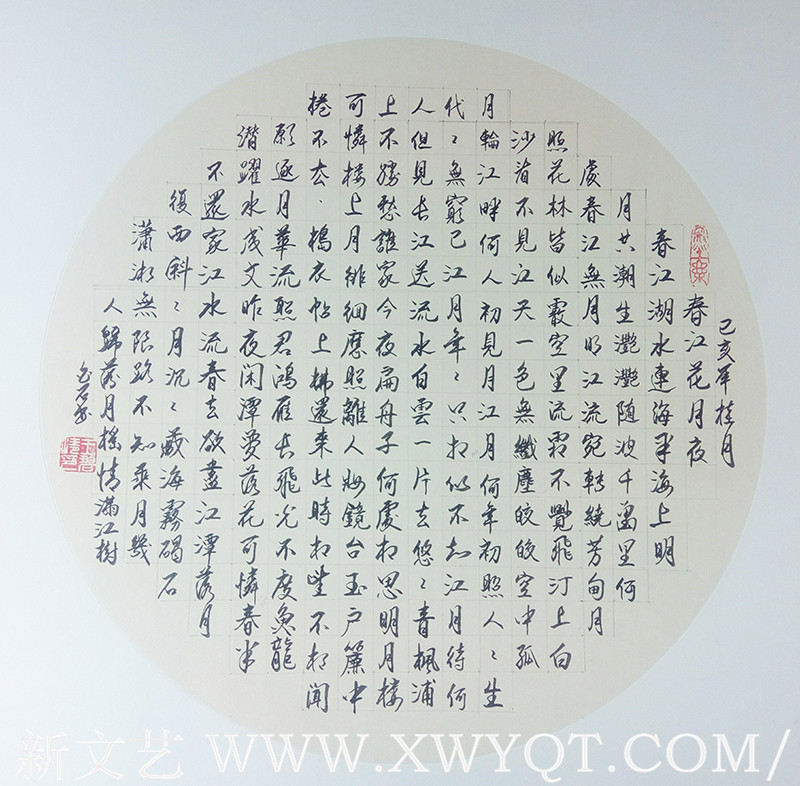 己亥年桂月
春江花月夜
春江湖水連海平海上明
月共潮生灧灧随波千萬里何
處春江無月明江流宛轉繞芳甸月
照花林皆似霰空里流霜不覺飛汀上白
沙看不見江天一色無纖塵皎皎空中孤
月輪江畔何人初見月江月何年初照人〻生
代〻無窮已江月年〻只相似不知江月待何
人但見長江送流水白雲一片去悠〻青楓浦
上不勝愁誰家今夜扁舟子何處相思明月楼
可憐楼上月徘徊應照離人妝鏡台玉户簾中
捲不去、搗衣砧上拂還来此時相望不相聞
願逐月華流照君鴻雁長飛光不度魚龍
潜躍水成文昨夜闲潭夢落花可憐春半
不還家江水流春去欲盡江潭落月
復西斜〻月沉〻藏海霧碣石
瀟湘無限路不知乘月幾
人歸落月摇情滿江樹
新文艺 WWW.XWYQT.COM/